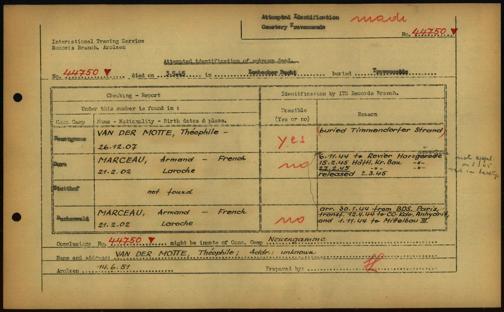 Attempted Identification
Cemetery Travemuende
made
No. 44750 ▼
International Tracing Service
Records Branch, Arolsen
Attempted identification of unknown dead.
No. 44750 ▼ died on 3.5.45 in buried
Checking - Report
Identification by ITS Records Branch.
Under this number is found in:
Feasible
(Yes or no)
Reason
Conc. Camp Name - Nationality - Birth dates & place.
VAN DER MOTTE, Théophile -
26.12.07
yes
buried Timmendorfer Strand
MARCEAU, Armand - French
21.2.02 Laroche
no
6.11.44 to Revier Harzgerode
15.2.45 Häftl. Kr. Bau
released 2.3.45
Stutthof
not found
Buchenwald
MARCEAU, Armand - French
21.2.02 Laroche
no
arr. 30.1.44 from BDS. Paris,
transf. 12.4.44 to CC Kdo. Anhydrit,
and 1.11.44 to Mittelbau III.
Conclusion: No. 44750 ▼ might be inmate of Conc. Camp Neuengamme
Name and address: VAN DER MOTTE, Théophile; Addr.: unknown
Arolsen 14.6.51 Prepared by: